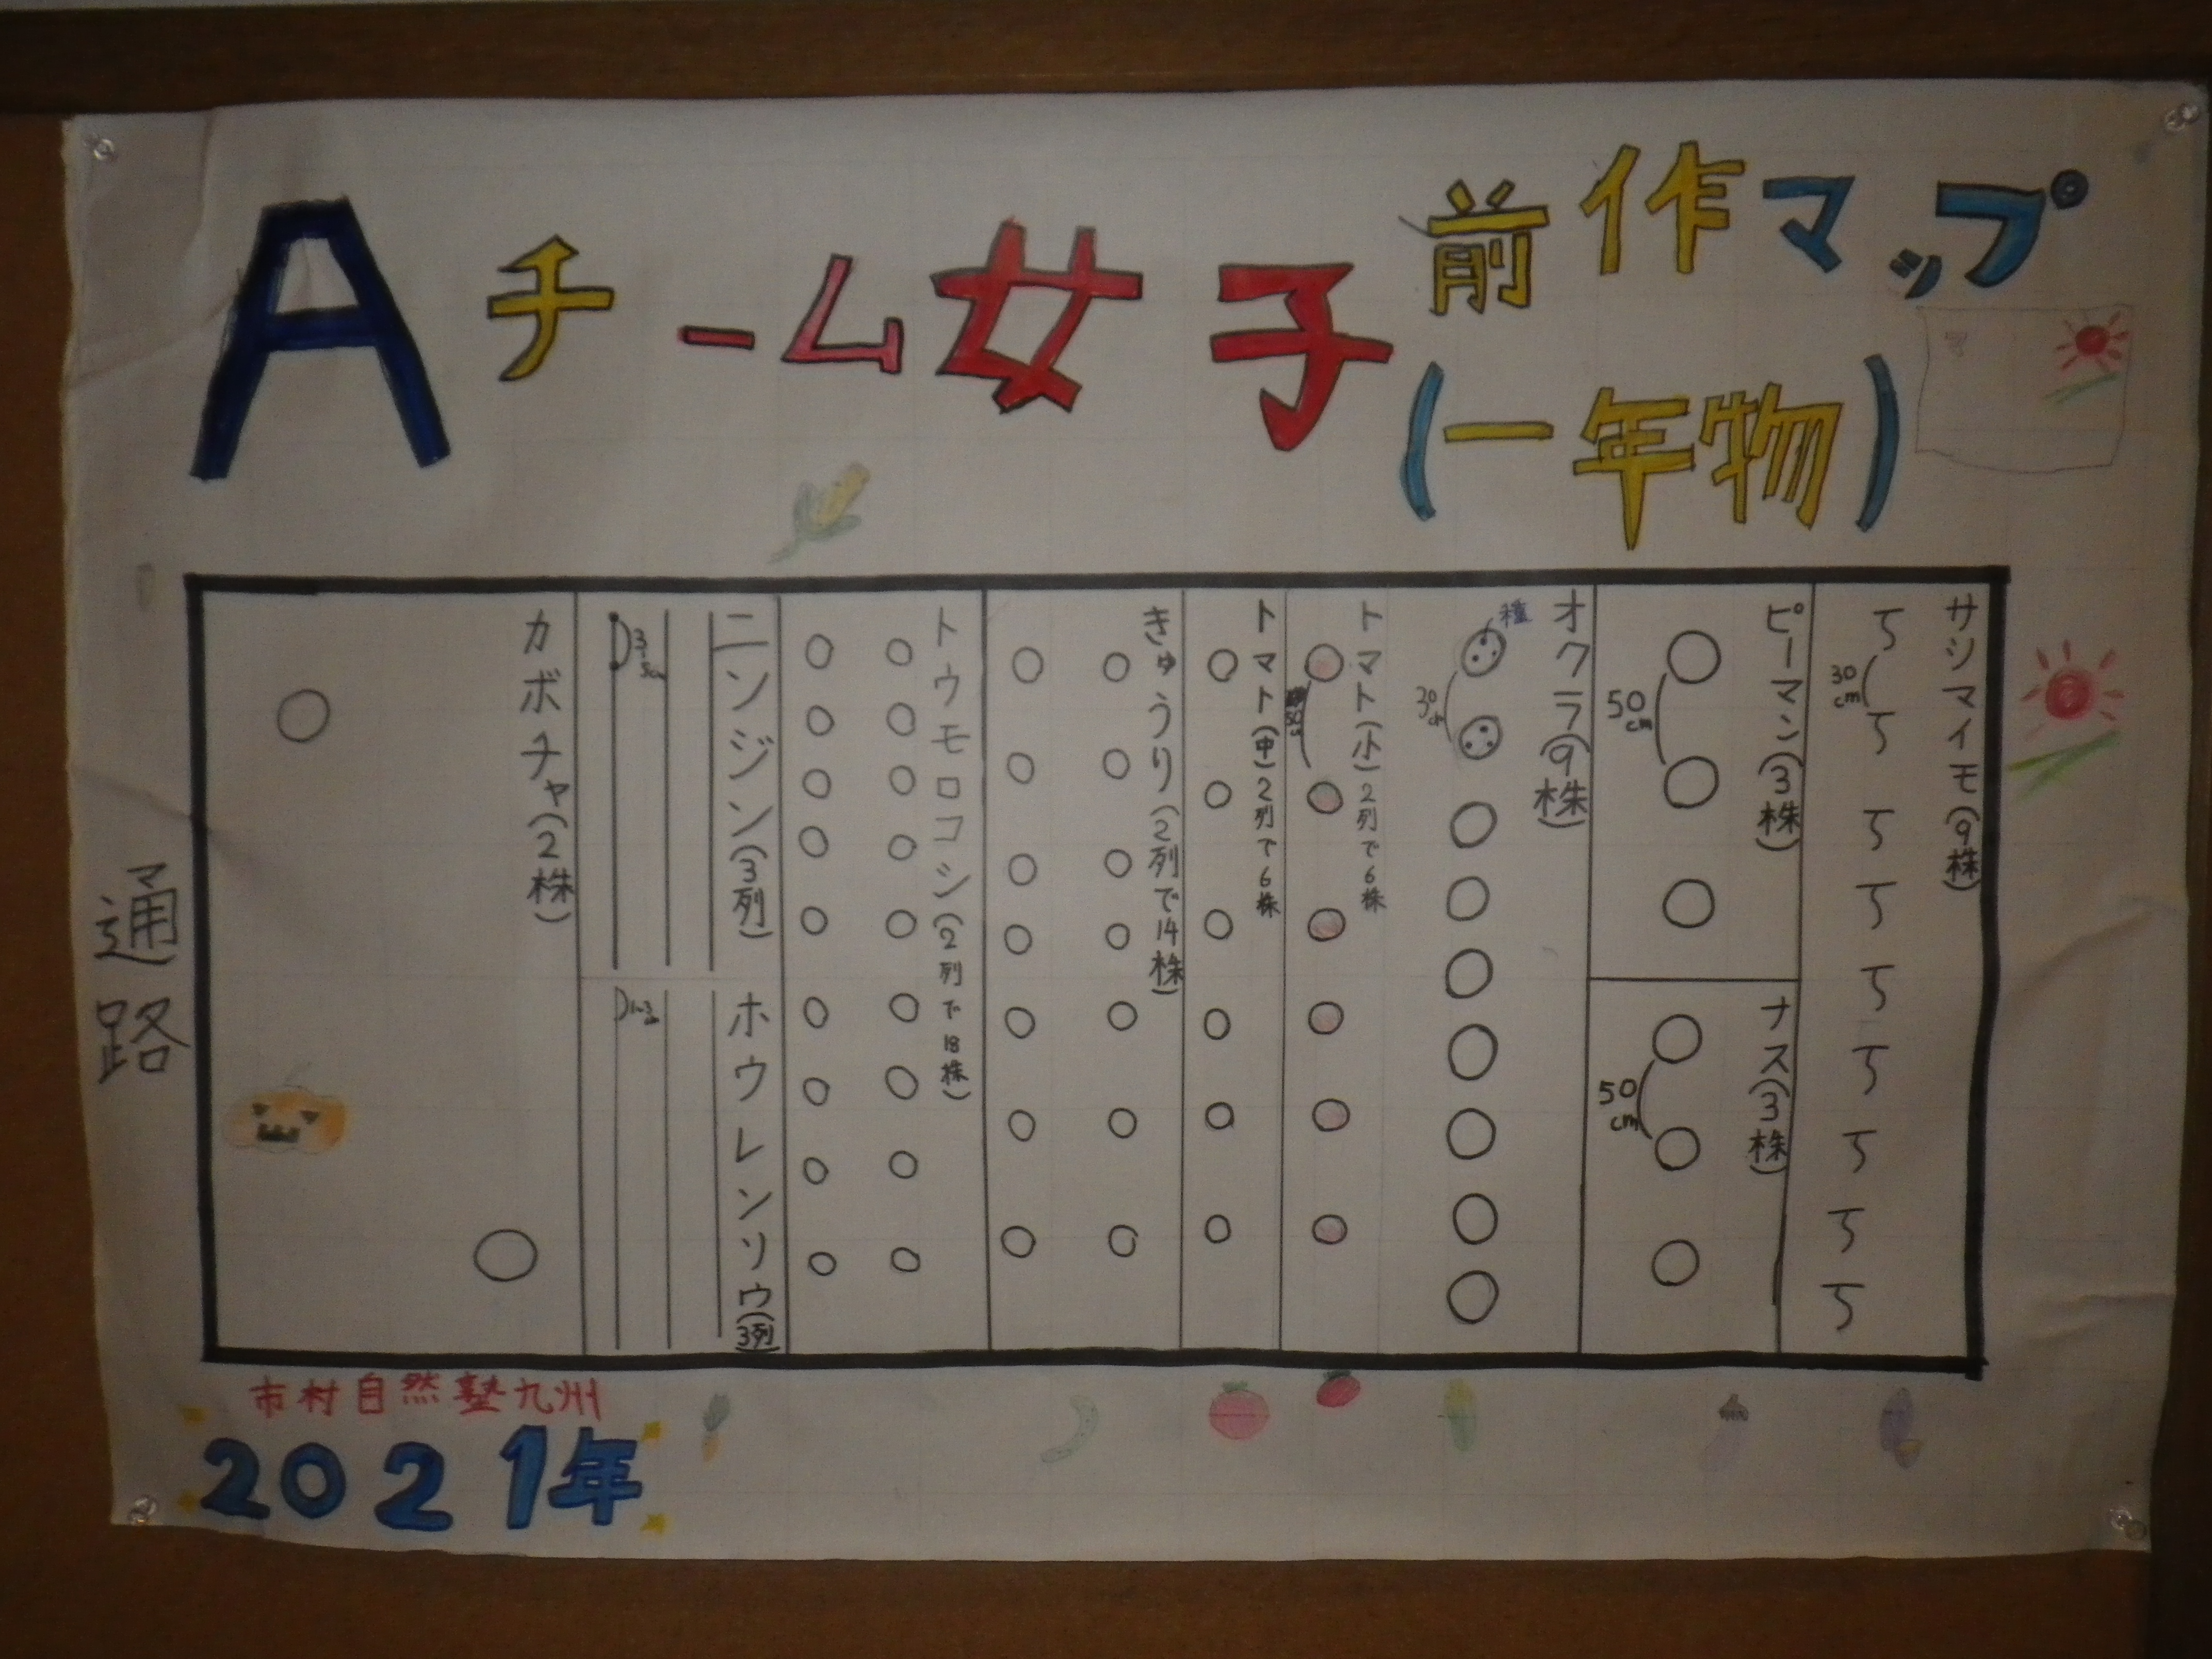 Aチーム女子
前作マップ
(一年物)
サツマイモ(9株)
30cm
ピーマン(3株)
50cm
ナス(3株)
50cm
オクラ(9株)
種
30cm
トマト(小)2列で6株
トマト(中)2列で6株
きゅうり(2列で14株)
トウモロコシ(2列で18株)
ニンジン(3列)
ホウレンソウ(3列)
カボチャ(2株)
通路
市村自然塾九州
2021年